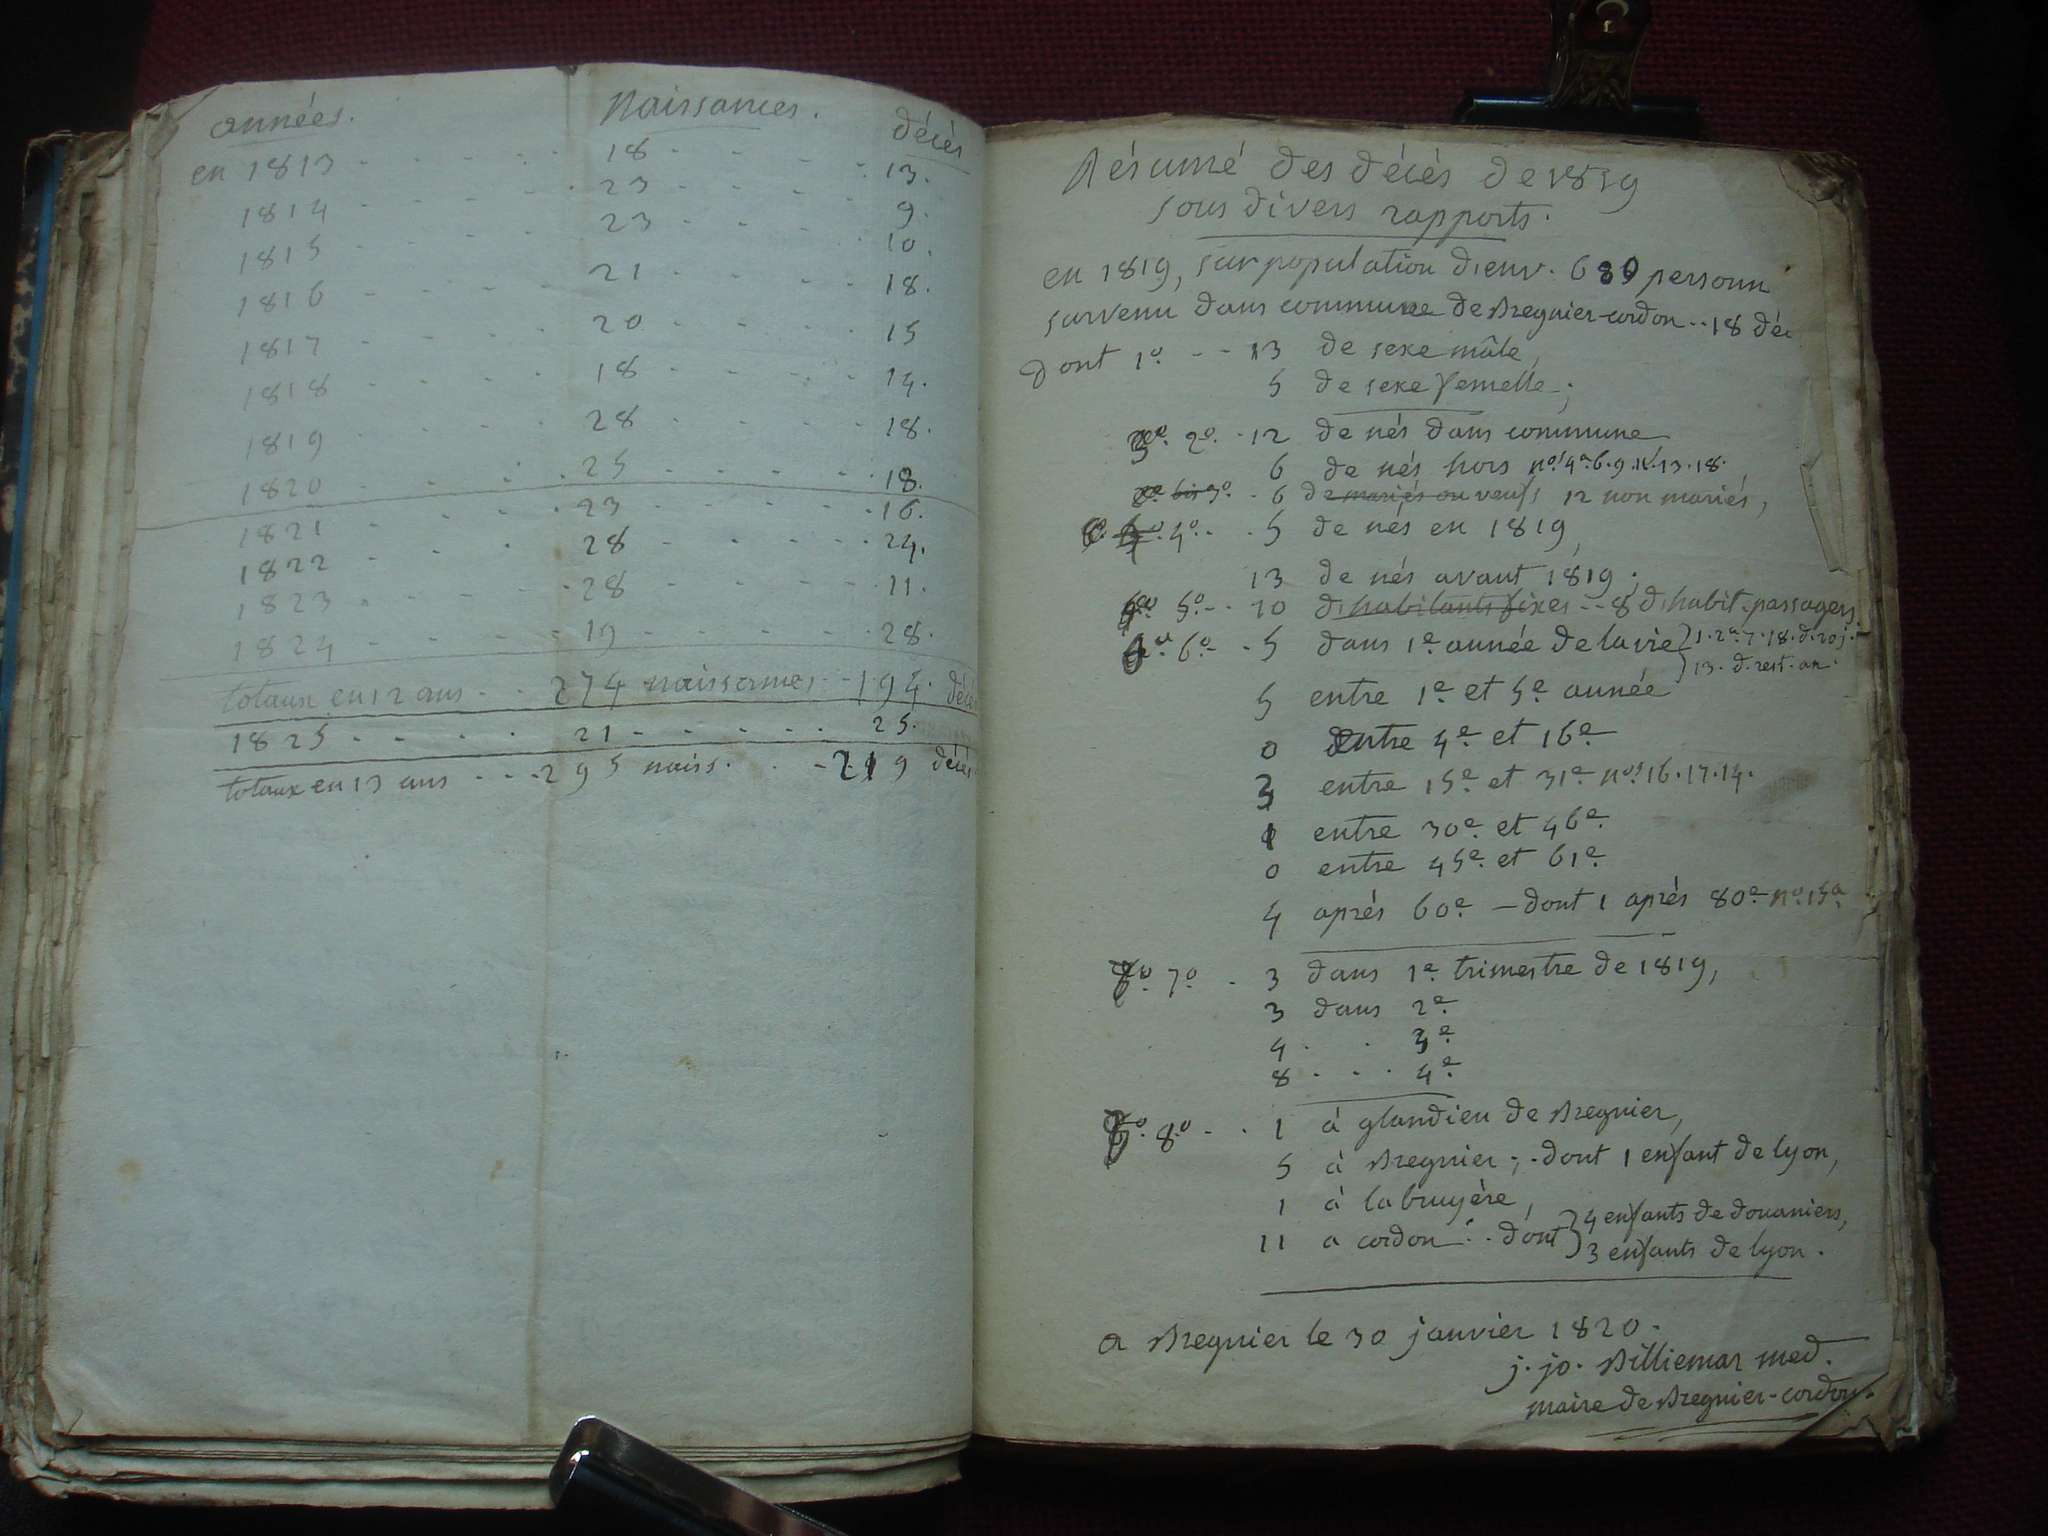 années. Naissances. décès
en 1813 - - - - 18 - - - - 13.
1814 - - - - 23 - - - - 9.
1815 - - - - 23 - - - - 10.
1816 - - - - 21 - - - - 18.
1817 - - - - 20 - - - - 15
1818 - - - - 18 - - - - 14.
1819 - - - - 28 - - - - 18.
1820 - - - - 25 - - - - 18.
1821 - - - - 23 - - - - 16.
1822 - - - - 28 - - - - 24.
1823 - - - - 28 - - - - 11.
1824 - - - - 19 - - - - 28.
totaux en 12 ans - - 274 naissances - 194. décè
1825 - - - - 21 - - - - 25.
totaux en 13 ans - - - 295 naiss. - - 219 décès
Résumé des décès de 1819
sous divers rapports.
en 1819, sur population d'env. 680 personn
survenu dans commune de Bregnier-cordon - - 18 déc
dont 1º - - 13 de sexe mâle,
5 de sexe femelle;
2º. - 12 de nés dans commune
6 de nés hors nos 4e. 6. 9. 11. 13. 18.
bis 3º. - 6 de mariés ou veufs 12 non mariés,
4º. - - 5 de nés en 1819,
13 de nés avant 1819.
5º. - - 10 d'habitants fixes - - 8 d'habit. passagers
6º. - - 5 dans 1e. année de la vie } 1. 2e. 7. 18. d. 20 j.
13. d. rest. an.
5 entre 1e. et 5e. année
0 entre 4e. et 16e.
3 entre 15e. et 31e. nos 16. 17. 14.
1 entre 30e. et 46e.
0 entre 45e. et 61e.
4 après 60e. — dont 1 après 80e. nº. 15e.
7º. - 3 dans 1e. trimestre de 1819,
3 dans 2e.
4 - - 3e.
8 - - - 4e.
8º. - - 1 à glandieu de Bregnier,
5 à Bregnier; - dont 1 enfant de lyon,
1 à la bruyère,
11 a cordon - - dont } 4 enfants de douaniers,
3 enfants de lyon.
a Bregnier le 30 janvier 1820.
j. jo. Billiemar med.
maire de Bregnier-cordon.